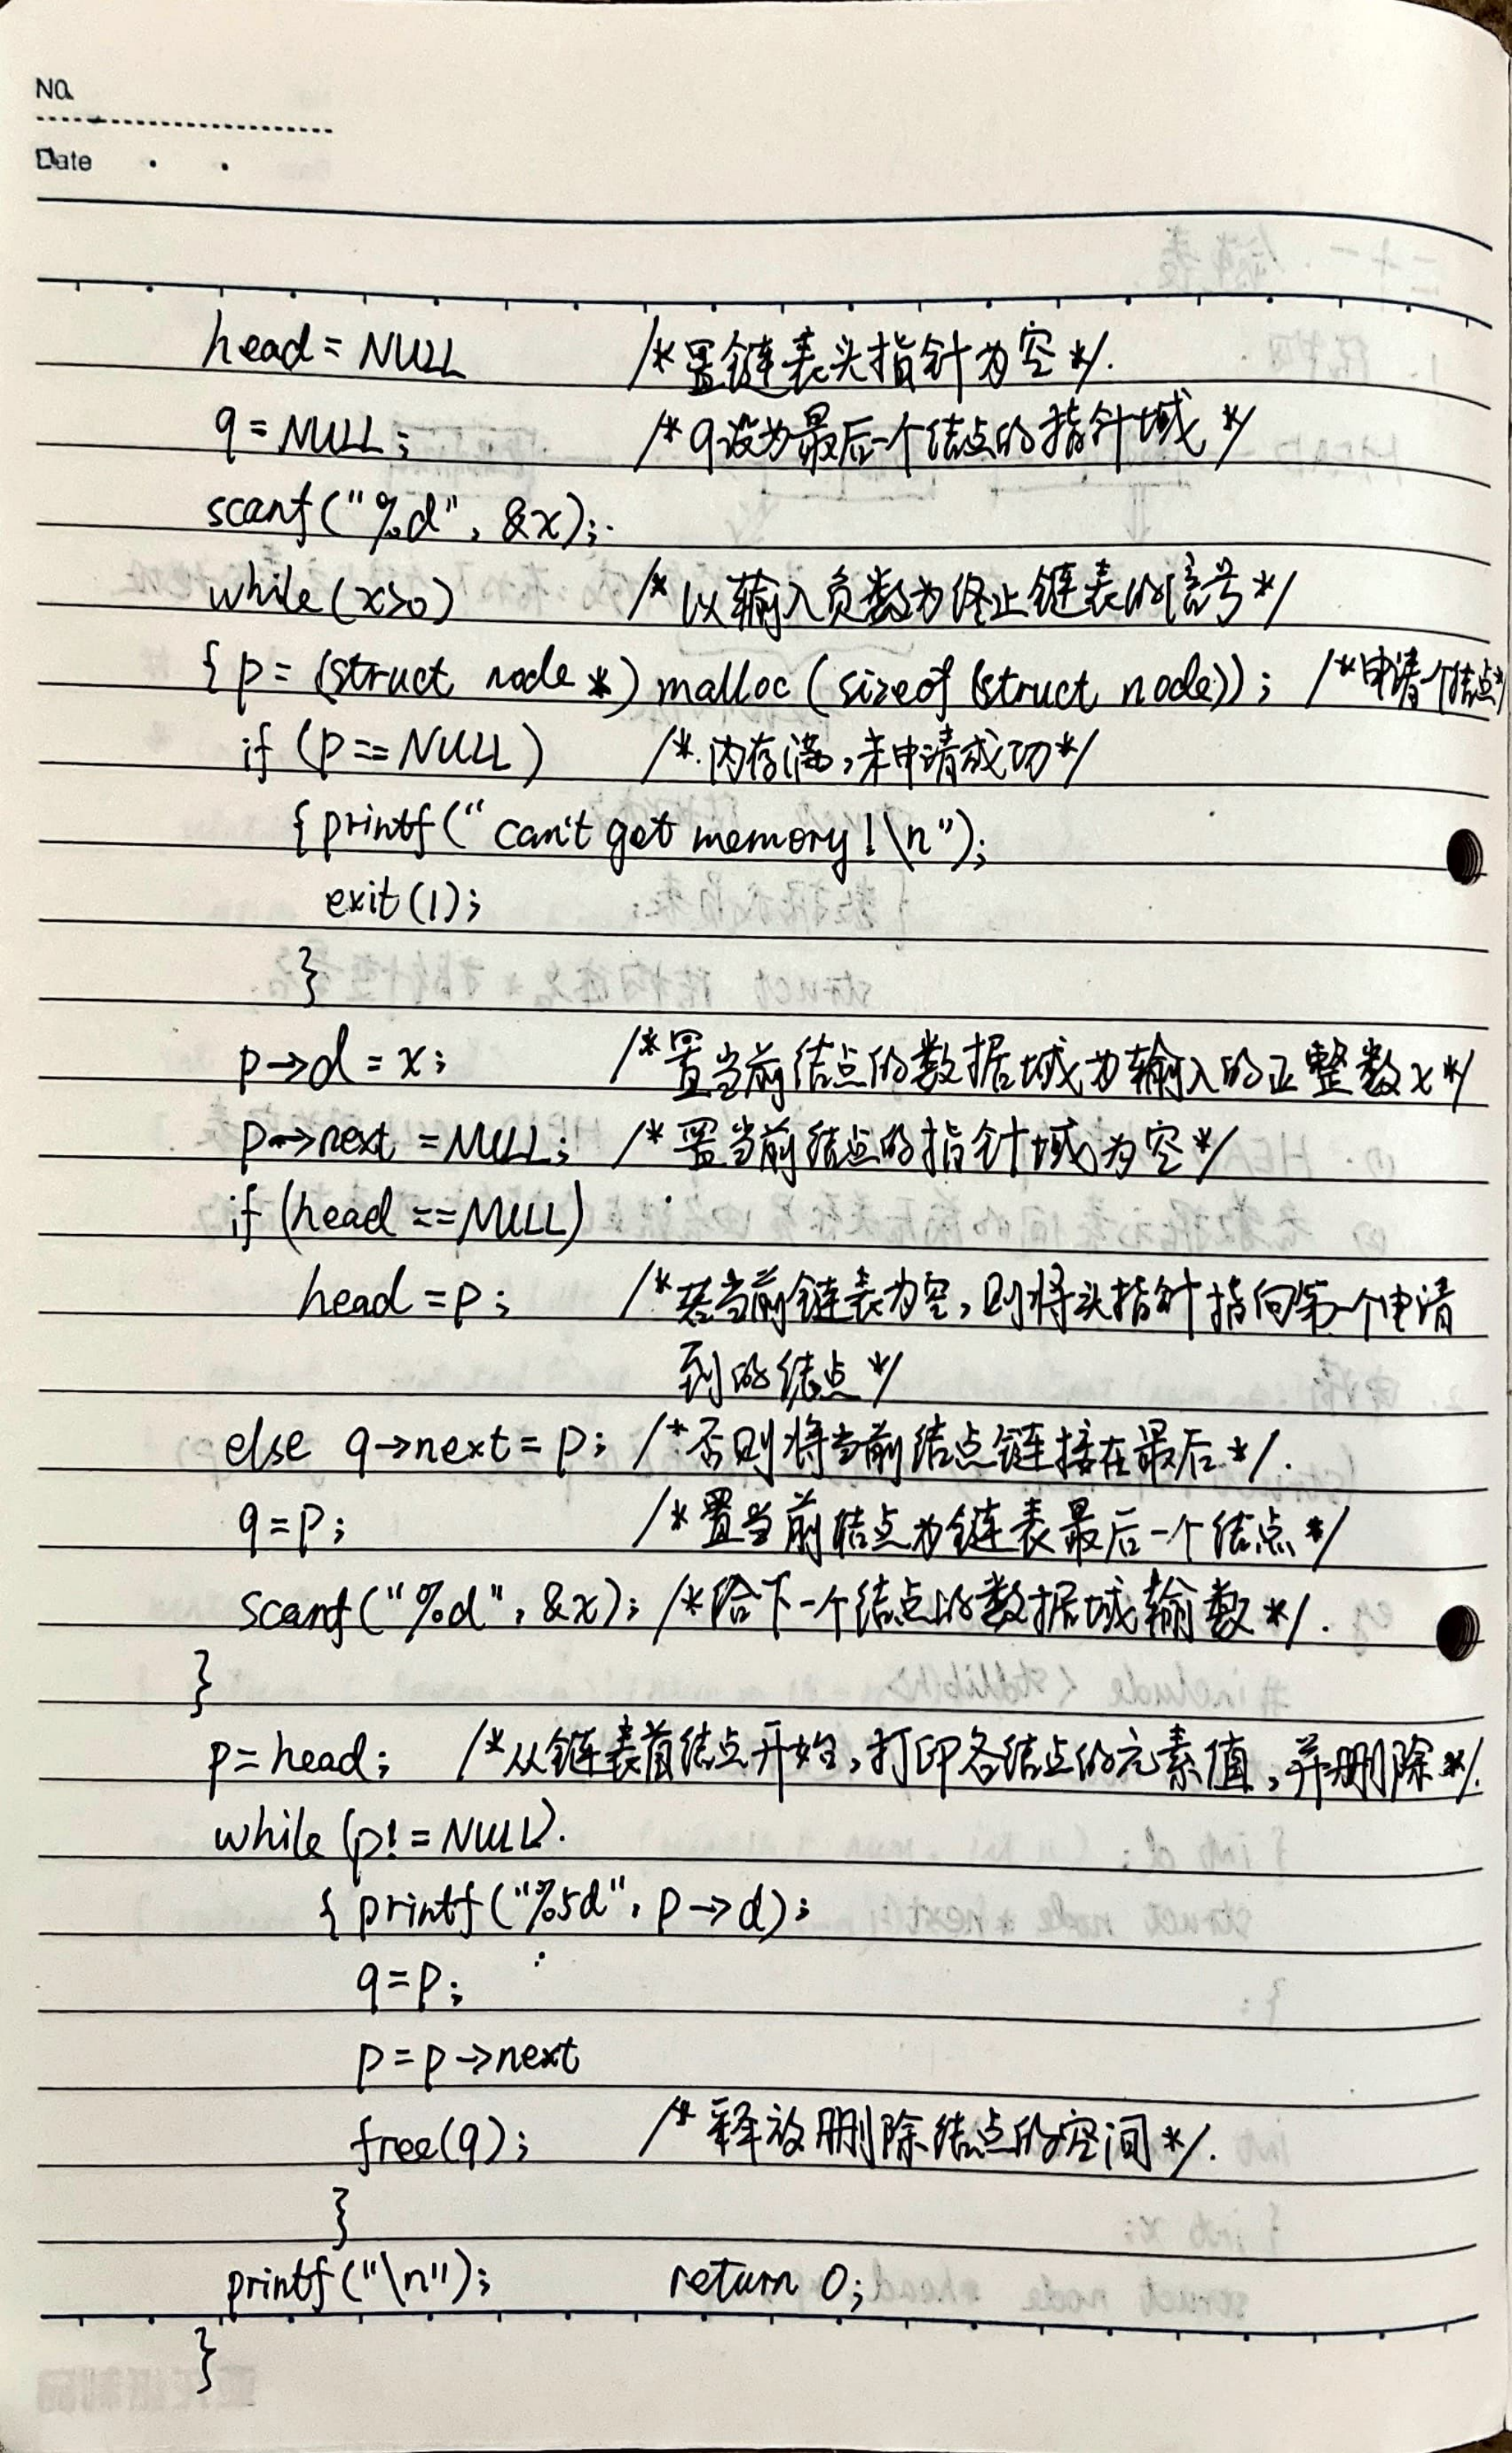 No.
Date
head = NULL /*置链表头指针为空*/.
q = NULL; /*q设为最后一个结点的指针域*/
scanf("%d", &x);
while(x>0) /*以输入负数为终止链表的信号*/
{ p = (struct node *) malloc (sizeof (struct node)); /*申请一个结点*/
if (p == NULL) /*内存满,未申请成功*/
{ printf(" can't get memory!\n");
exit(1);
}
p→d = x; /*置当前结点的数据域为输入的正整数x*/
p→next = NULL; /*置当前结点的指针域为空*/
if (head == NULL)
head = p; /*若当前链表为空,则将头指针指向第一个申请
到的结点*/
else q→next = p; /*否则将当前结点链接在最后*/.
q = p; /*置当前结点为链表最后一个结点*/
scanf("%d", &x); /*给下一个结点的数据域输数*/.
}
p = head; /*从链表首结点开始,打印各结点的元素值,并删除*/.
while (p! = NULL).
{ printf("%5d", p→d);
q = p;
p = p→next
free(q); /*释放删除结点的空间*/.
}
printf("\n"); return 0;
}